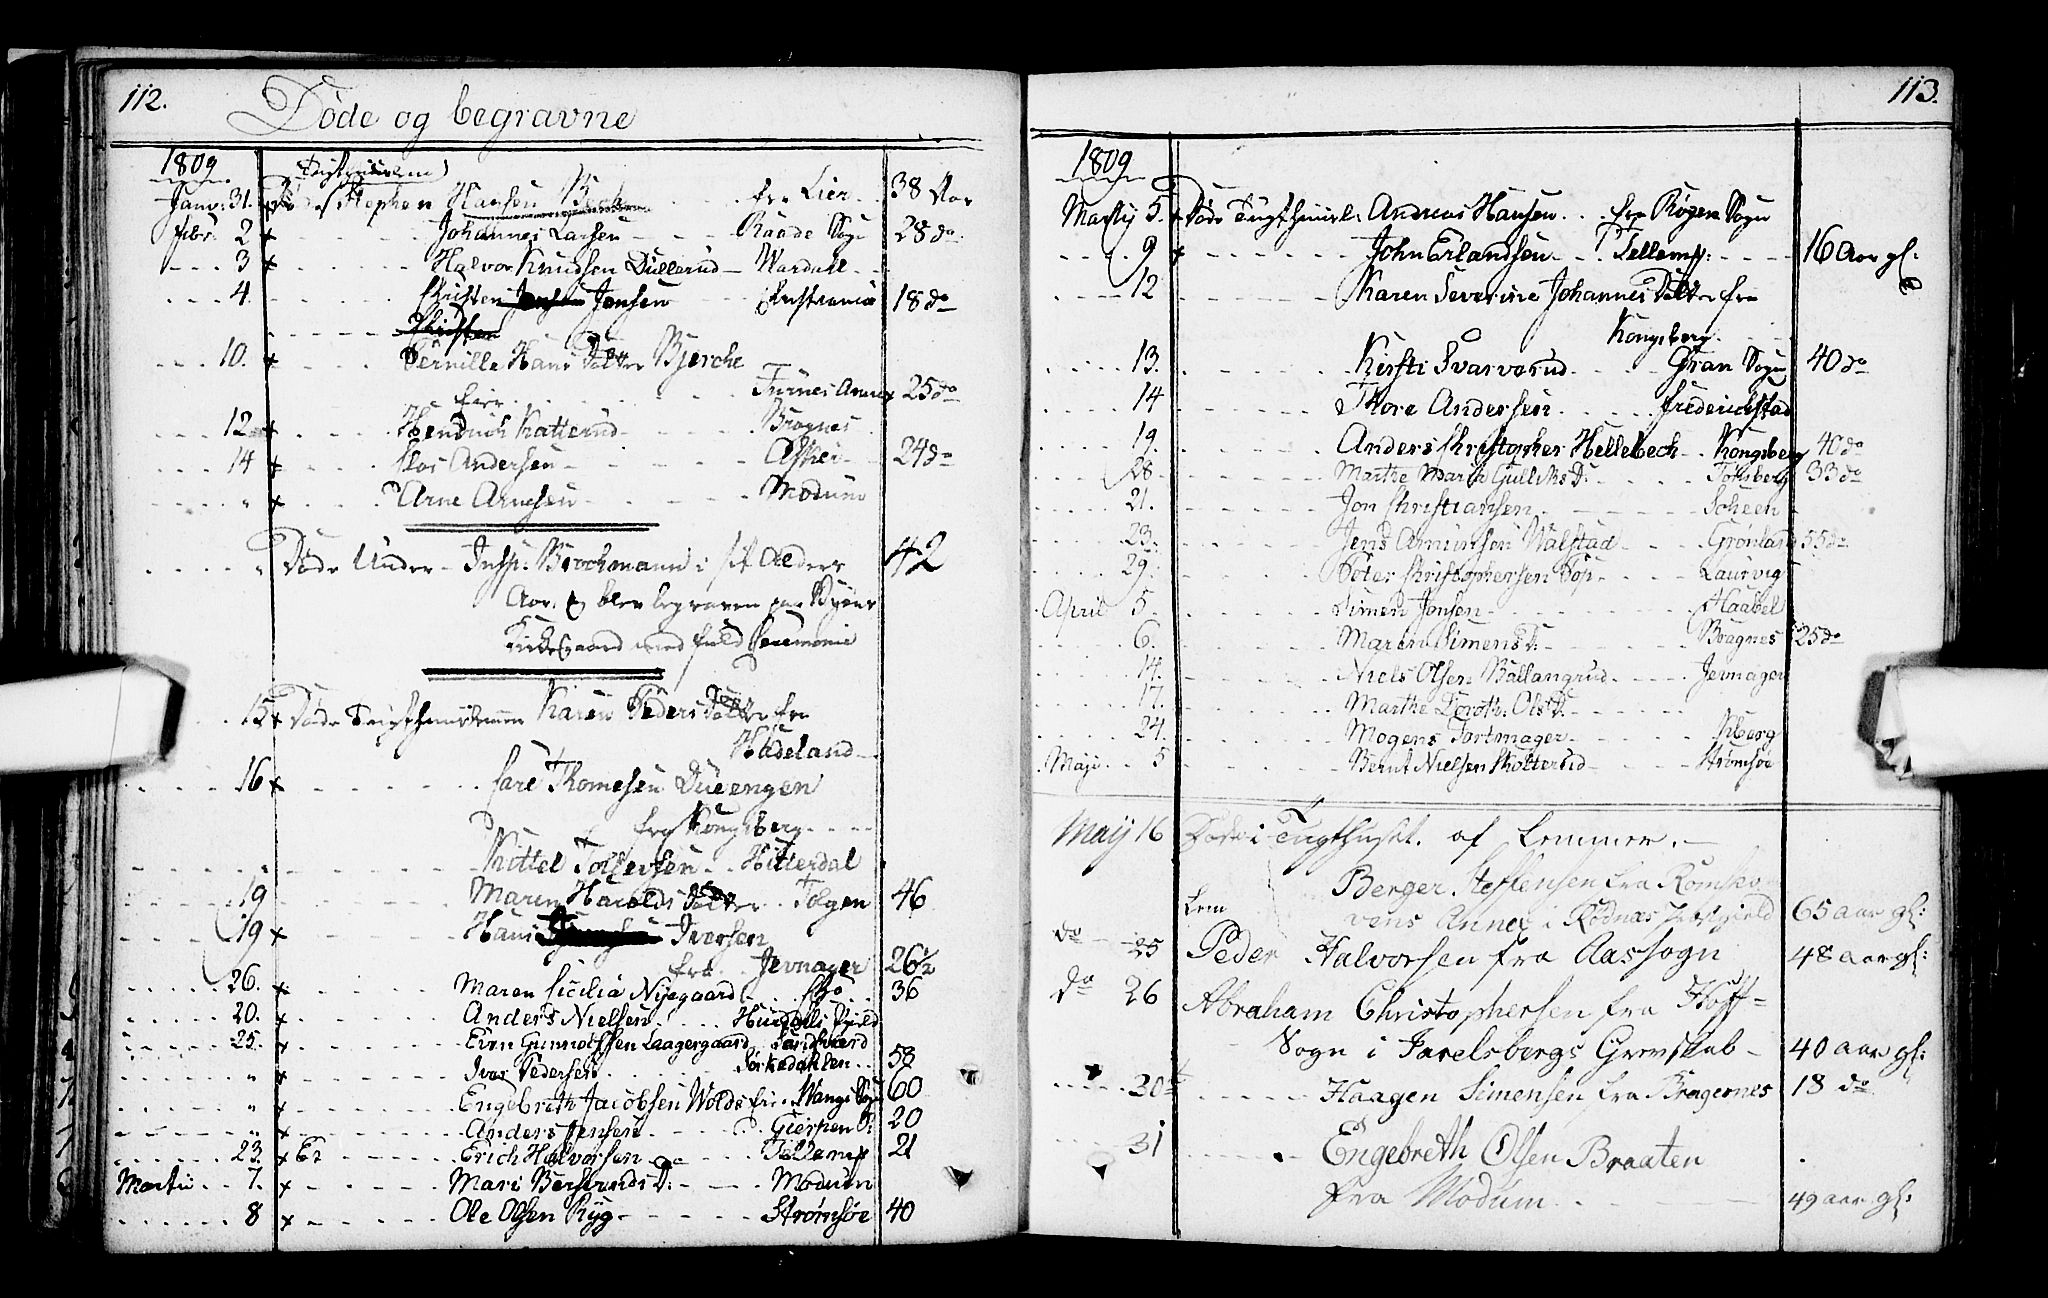 112.
Døde og begravne
1809
Janv: 31. Stephen Hansen Beck fra Lier 38 Aar
febr. 2 Johannes Larsen Raade Sogn 28 do
3 Halvor Knudsen Dullerud Wardahl
4. Christen Jensen Christiania 18 do
10. Pernille Hans Datter Bjerche
fra Furnes Annex 25 do
12 Hendrich Katterud Bragnes
14 Clas Andersen Asker 24 do
" Arne Arnesen Modum
" Døde Under- Insp: Brochmann i sit Alders 42
Aar. og blev begraven paa Byens
Kirkegaard med fuld Ceremonie
15 Døde Tugthuuslemmen Karen Peders Datter fra
Hadeland
16 Carl Thomesen Dueengen
fra Kongsberg
" Kittel Tollevsen Hitterdal
19 Maren Harolds Datter Tolgen 46
19 Hans Iversen
fra Jevnager 26½
26. Maren Cicilia Nyegaard 36
20. Anders Nielsen Hurdals
25. Even Gunnolfsen Laagergaard Sandsværd
" Iver Pedersen Sørkedahlen 58
" Engebreth Jacobsen Wolds fra Wangs Sogn 60
" Anders Jensen Gierpen 20
23. Er Erich Halvorsen Tellemk 21
Martii 7. Mari Berthrands D: Modum
8 Ole Olsen Ryg Strømsøe 40
113.
1809
Martij 5. Døde Tugthuusl: Andreas Hansen fra Røgen Sogn
9 John Erlandsen Tellemk: 16 Aar gl:
12 Karen Severine Johannes Datter fra
Kongsberg
13. Kirsti Svarverud Gran Sogn 40 do
14 Thore Andersen Friderichstad
19. Anders Christopher Hellebech Kongsberg 40 do
28 Marthe Maria Gulliks D: Tonsberg 33 do
21. Jon Christiansen Scheen
23. Jens Amunsen Walstad Grønland 55 do
29. Peter Christophersen Top Laurvig
April 5. Simen Jonsen Haabel
6. Maren Simens D: Bragnes 25 do
14. Niels Olsen Ballangrud Jevnager
17. Marthe Doroth: Ols D:
24. Mogens Portmager Kberg
Maji 5 Bernt Nielsen Kolterud Strømsøe
Maij 16 Døde i Tugthuset. af Lemmer.
Berger Steffensen fra Romsko-
Lem vens Annex i Rødnæs Præstgield 65 aar gl:
do 25 Peder Halvorsen fra Aassogn 48 aar gl:
do 26 Abraham Christophersen fra Hoff=
Sogn i Jarelsbergs Grevskab 40 aar gl:
30 Haagen Simensen fra Bragernes 18 do
31 Engebreth Olsen Braaten
fra Modum 49 aar gl: